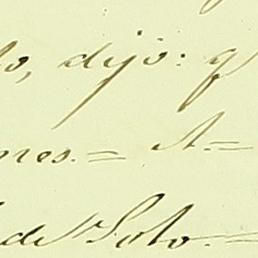 lo, dijo: q
nes.= A.=
de Soto.=